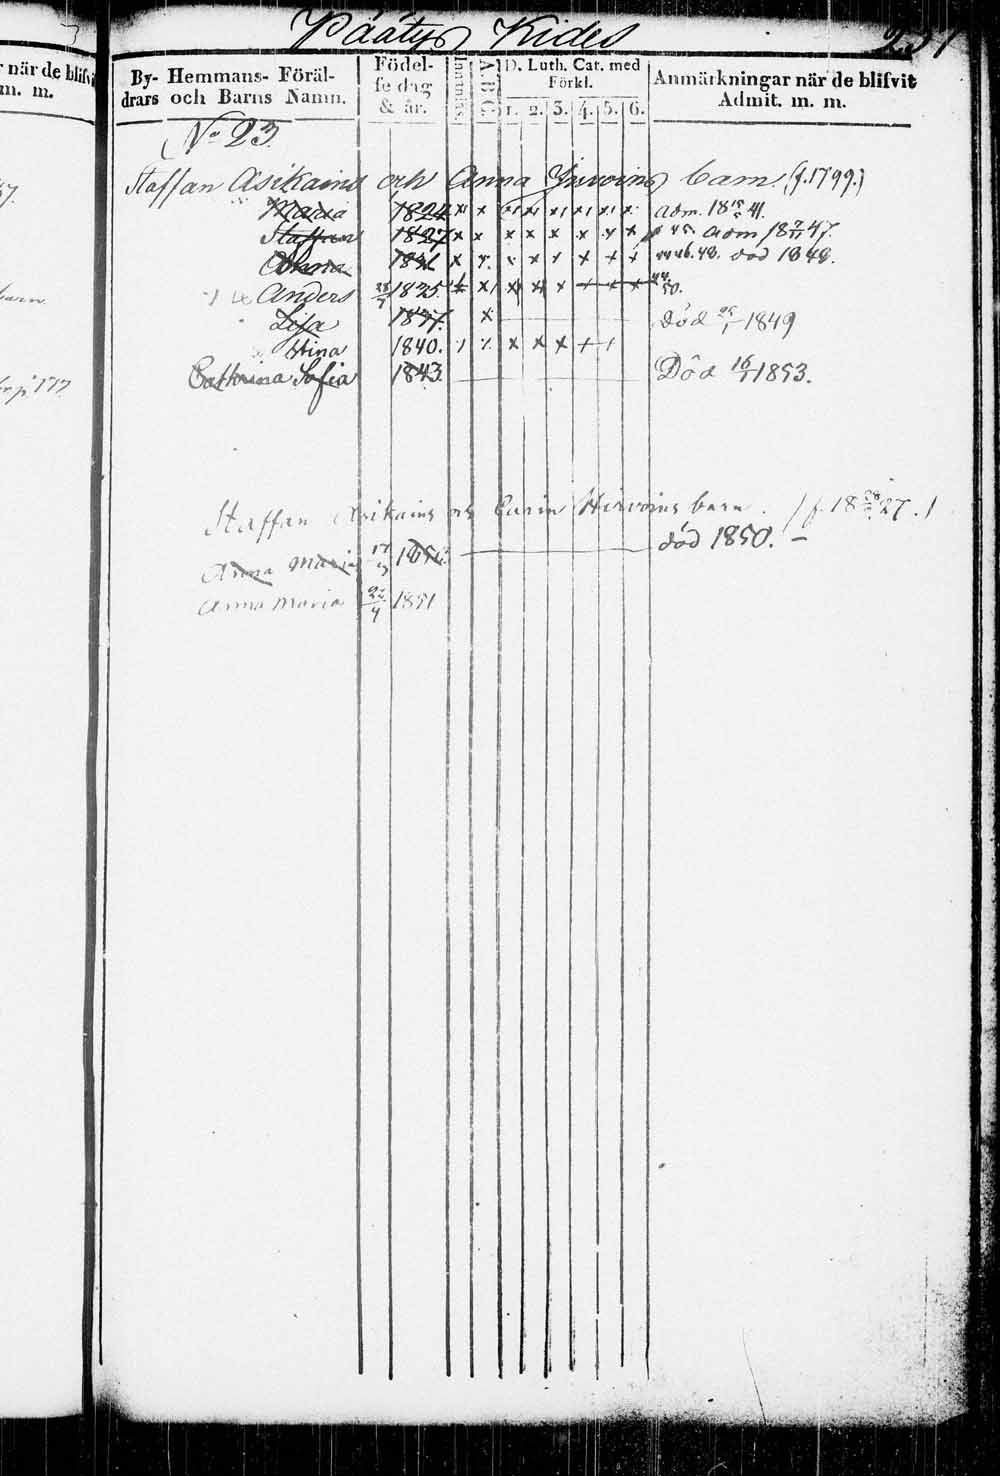 Päätys Kides 
By- Hemmans- Föräl-
drars och Barns Namn.
Födel-
se dag
& år.
Innanläs
A.B.C.
D. Luth. Cat. med
Förkl.
1. 2. 3. 4. 5. 6.
Anmärkningar när de blifvit
Admit. m. m.
No 23
Staffan Asikains och Anna barn. (f. 1799.)
Maria 1824 x x x x x x x x adm. 18 41.
Staffan 1827 x x x x x x x x 45. adm 18 47.
Anna 1831 x x x x x x 46. 48. död 1848.
Anders 1835 x x x x x 50.
Lisa 1837. x Död 1849
Stina 1840. x x x
Cathrina Sofia 1843 Död 16/1 1853.
Staffan Asikains och Carin Hirvoins barn. / f. 18 27. /
Anna Maria 17 1850 död 1850. —
Anna Maria 22/4 1851
när de blifvit
m. m.
177